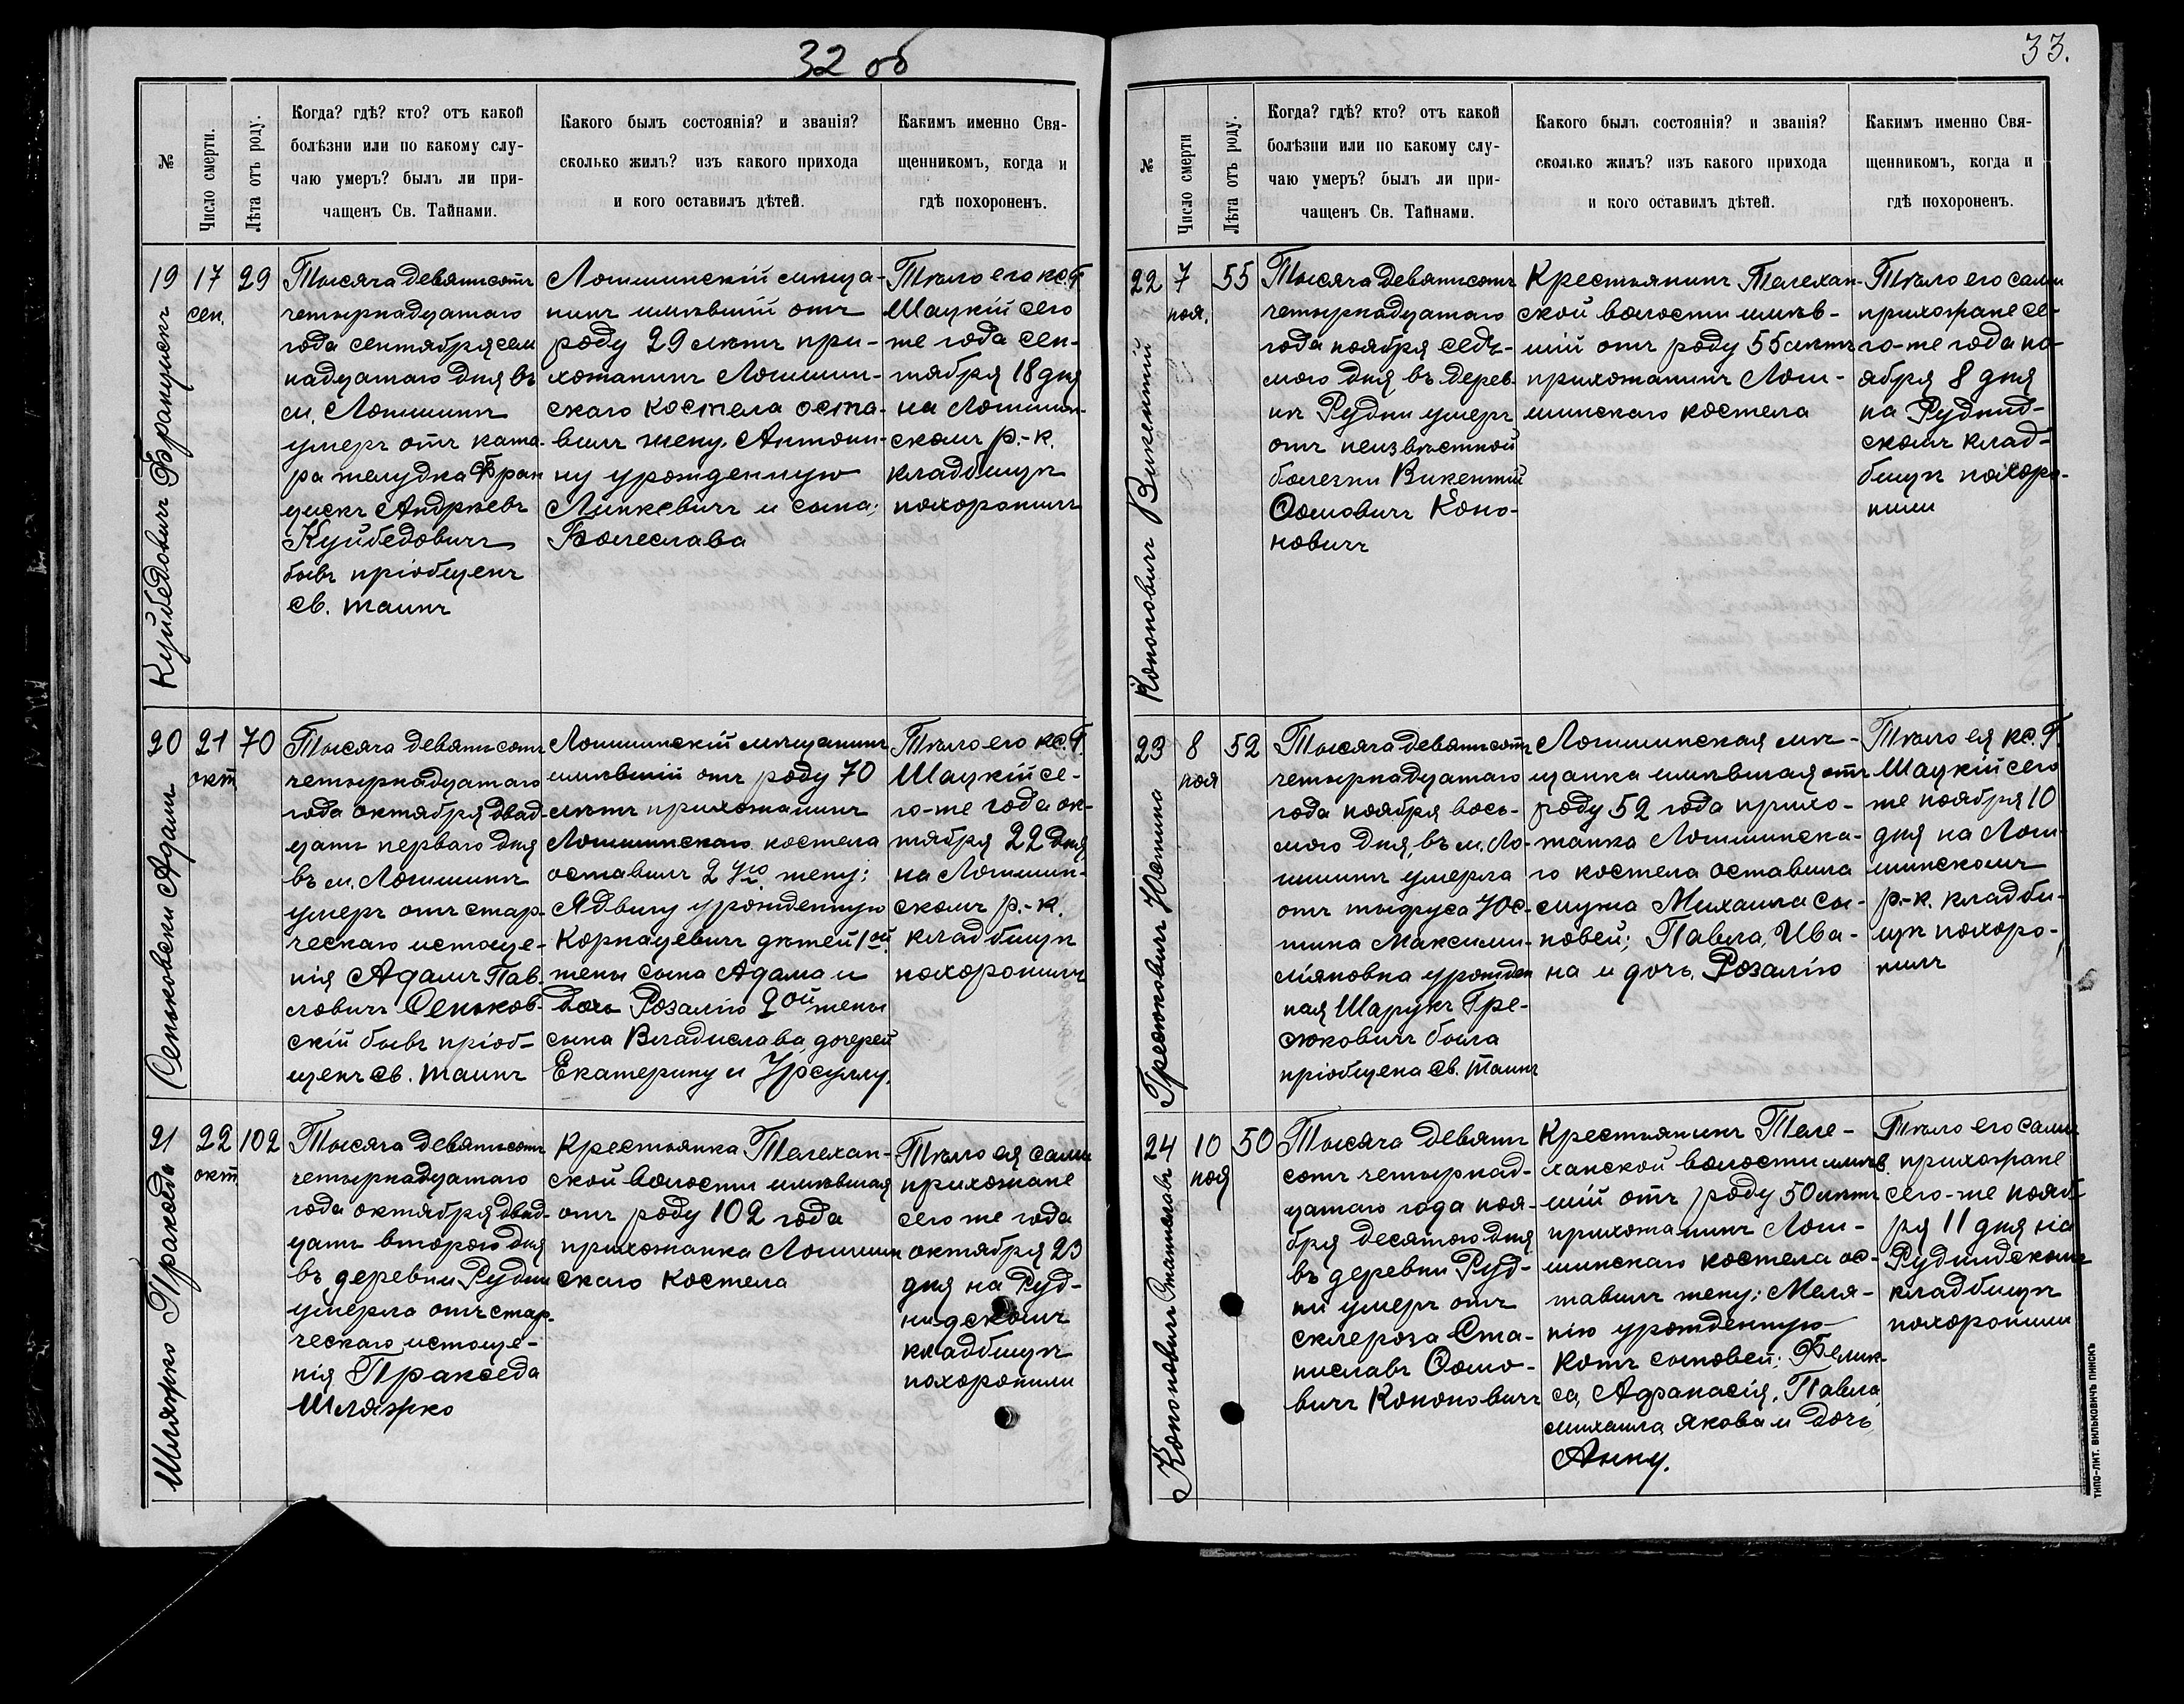 32 об
№
Число смерти.
Лѣта отъ роду.
Когда? гдѣ? кто? отъ какой
болѣзни или по какому слу-
чаю умеръ? былъ ли при-
чащенъ Св. Тайнами.
Какого былъ состоянія? и званія?
сколько жилъ? изъ какого прихода
и кого оставилъ дѣтей.
Какимъ именно Свя-
щенникомъ, когда и
гдѣ похороненъ.
Куйбедовичъ Францискъ
19
17
сен.
29
Тысяча девятьсотъ
четырнадцатаго
года сентября сем
надцатаго дня въ
м. Логишинѣ
умеръ отъ ката-
ра желудка Фран
цискъ Андреевъ
Куйбедовичъ
бывъ пріобщенъ
св. таинъ
Логишинскій мѣща-
нинъ имѣвшій отъ
роду 29 лѣтъ при-
хожанинъ Логишин-
скаго костела оста-
вилъ жену, Антони-
ну урожденную
Линкевичъ и сына;
Болеслава
Тѣло его кс. Г.
Шацкій сего
же года сен-
тября 18 дня
на Логишин-
скомъ р.-к.
кладбищѣ
похоронилъ
Сеньковски Адамъ
20
21
окт
70
Тысяча девятьсотъ
четырнадцатаго
года октября двад-
цать перваго дня
въ м. Логишинѣ
умеръ отъ стар-
ческаго истоще-
нія Адамъ Пав-
ловичъ Сеньков-
скій бывъ пріоб-
щенъ св. таинъ
Логишинскій мѣщанинъ
имѣвшій отъ роду 70
лѣтъ прихожанинъ
Логишинскаго костела
оставилъ 2 ую жену;
Ядвигу урожденную
Корнацевичъ дѣтей 1ой
жены сына Адама и
дочь Розалію 2ой жены
сына Владислава, дочерей
Екатерину и Урсулу.
Тѣло его кс. Г.
Шацкій се-
го-же года ок-
тября 22 дня
на Логишин-
скомъ р.-к.
кладбищѣ
похоронилъ
Шляжко Пракседа
21
22
окт
102
Тысяча девятьсотъ
четырнадцатаго
года октября двад-
цать второго дня
въ деревни Рудни
умерла отъ стар-
ческаго истоще-
нія Пракседа
Шляжко
Крестьянка Телехан-
ской волости имѣвшая
отъ роду 102 года
прихожанка Логишин
скаго костела
Тѣло ея сами
прихожане
сего же года
октября 23
дня на Руд-
нидскомъ
кладбищѣ
похоронили
33.
№
Число смерти
Лѣта отъ роду.
Когда? гдѣ? кто? отъ какой
болѣзни или по какому слу-
чаю умеръ? былъ ли при-
чащенъ Св. Тайнами.
Какого былъ состоянія? и званія?
сколько жилъ? изъ какого прихода
и кого оставилъ дѣтей.
Какимъ именно Свя-
щенникомъ, когда и
гдѣ похороненъ.
Кононовичъ Викентій
22
7
ноя.
55
Тысяча девятьсотъ
четырнадцатаго
года ноября седь-
мого дня, въ дерев-
нѣ Рудни умеръ
отъ неизвѣстной
болезни Викентій
Осиповичъ Коно-
новичъ
Крестьянинъ Телехан-
ской волости имѣв-
шій отъ роду 55 лѣтъ
прихожанинъ Логи-
шинскаго костела
Тѣло его сами
прихожане се-
го-же года но-
ября 8 дня
на Руднид-
скомъ клад-
бищѣ похоро-
нили
Гресюковичъ Юстина
23
8
ноя
52
Тысяча девятьсотъ
четырнадцатаго
года ноября вось-
мого дня, въ м. Ло-
гишинѣ умерла
отъ тыфуса Юс-
тина Максими-
ліяновна урожден
ная Шарукъ Гре-
сюковичъ была
пріобщена св. таинъ
Логишинская мѣ-
щанка имѣвшая отъ
роду 52 года прихо-
жанка Логишинска-
го костела оставила
мужа Михаила сы-
новей; Павла, Ива-
на и дочь, Розалію
Тѣло ея кс. Г.
Шацкій сего
же ноября 10
дня на Логи-
шинскомъ
р.-к. кладби-
щѣ похоро-
нилъ
Кононовичъ Станиславъ
24
10
ноя
50
Тысяча девять
сотъ четырнад-
цатаго года ноя-
бря десятого дня
въ деревни Руд-
ни умеръ отъ
склероза Ста-
ниславъ Осипо-
вичъ Кононовичъ
Крестьянинъ Теле-
ханской волости имѣв.
шій отъ роду 50 лѣтъ
прихожанинъ Логи-
шинскаго костела ос-
тавилъ жену; Мела-
нію урожденную
Котъ сыновей; Фелик-
са, Афанасія, Павла,
михаила якова и дочь
Анну.
Тѣло его сами
прихожане
сего-же нояб-
ря 11 дня на
Руднидскомъ
кладбищѣ
похоронили
ТИПО-ЛИТ. ВИЛЬКОВИЧЪ ПИНСКЪ